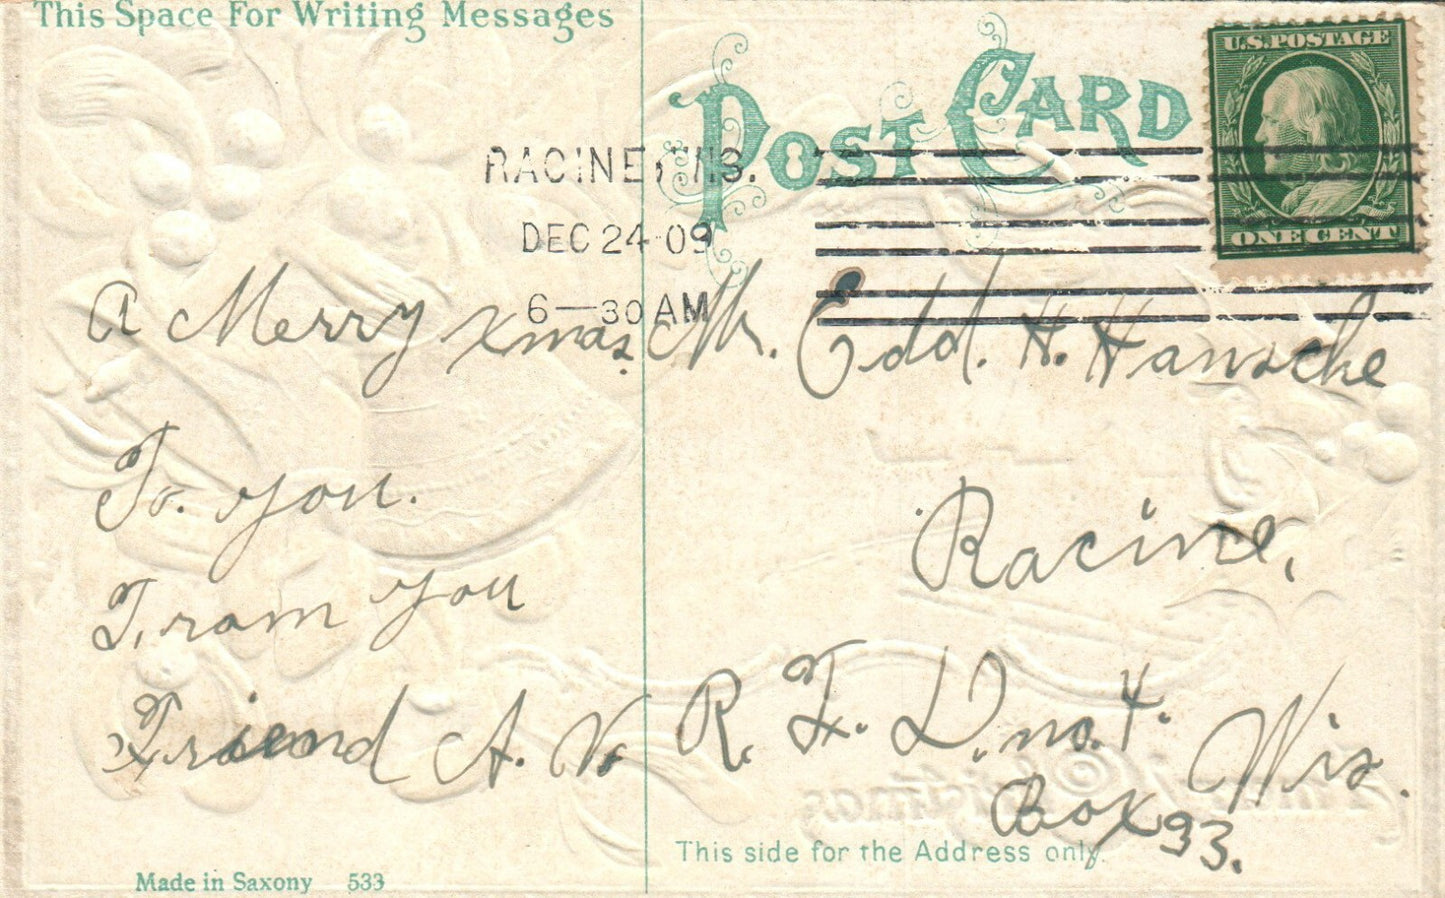 This Space For Writing Messages
POST CARD
U.S. POSTAGE
ONE CENT
RACINE, WIS.
DEC 24 09
6—30 AM
A Merry xmas.
To. you.
From you
Friend A. V.
Mr. Edd. H. Hansche
Racine,
R. F. D. no. 4. Wis.
Box 93.
This side for the Address only.
Made in Saxony 533
Christmas